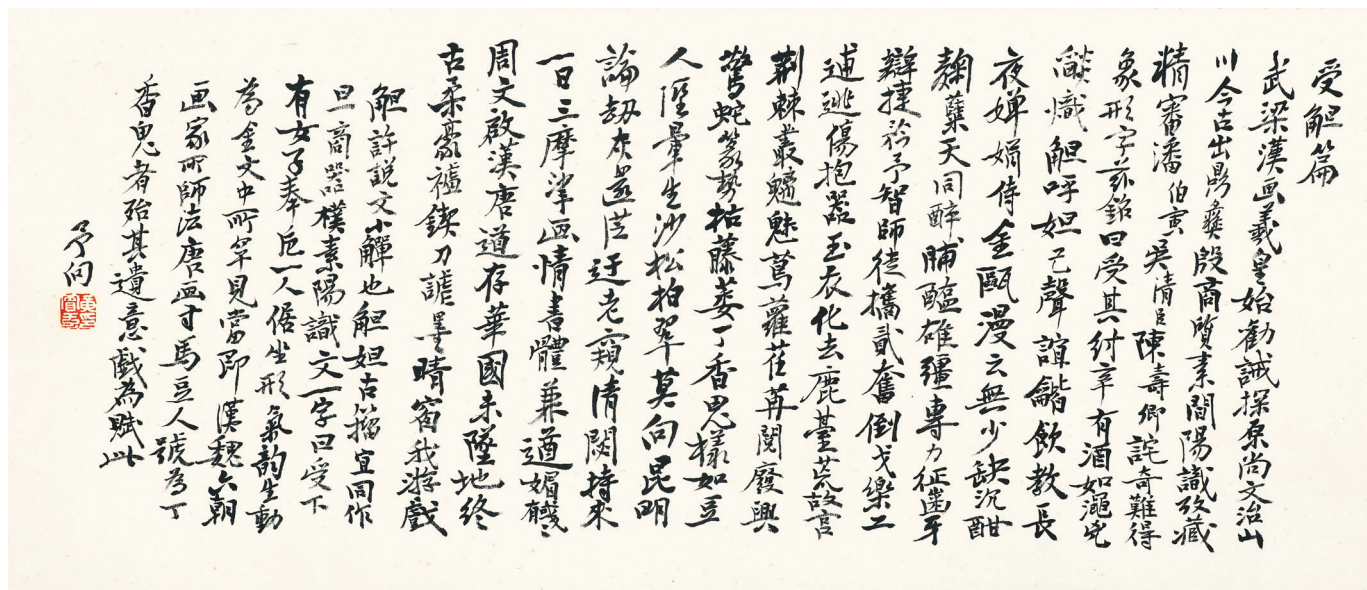 受觛篇
武梁漢画羲皇始勸誡探原尚文治山
川今古出鼎彝殷商質素間陽識攷藏
精審潘伯寅吳清臣陳壽卿詫奇難得
象形字茲銘曰受其紂辛有酒如澠兕
熾觛呼妲己聲誼龤飲教長
夜嬋娟侍金甌漫云無少缺沉酣
麴糵天同醉脯醢雄彊專力征齒牙
辯捷矜予智師徒攜貳奮倒戈樂工
逋逃傷抱器玉衣化去鹿臺荒故宮
荊棘叢魑魅蔦蘿荏苒閱廢興
驚蛇篆勢枯藤萎丁香鬼樣如豆
人陘暈生沙松柏翠莫向昆明
論劫灰還從迂老窺清閟持來
一日三摩挲画情書體兼遒媚戔戔
周文啟漢唐道存華國未墜地終
古柔豪襪鍥刀謔墨晴窗我游戲
觛許說文小觶也觛妲古籀宜同作
旦商器樸素陽識文一字曰受下
有女子奉卮一人倨坐形氣韵生動
為金文中所罕見當即漢魏六朝
画家所師法唐画寸馬豆人號為丁
香鬼者殆其遺意戲為賦此
予向